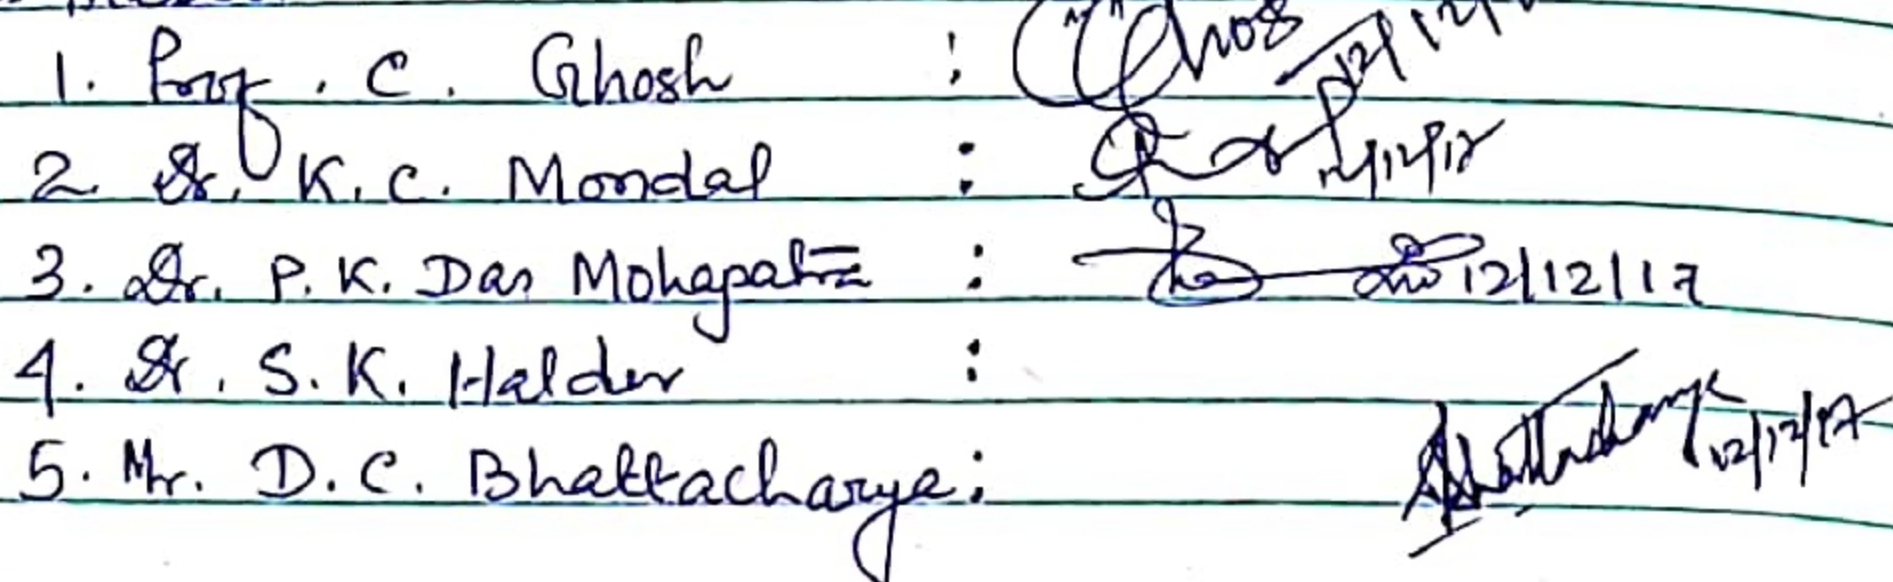 1. Prof. C. Ghosh : Ghos 12/12/
2. Dr. K. C. Mondal : 12/12/17
3. Dr. P. K. Das Mohapatra : 12/12/17
4. Dr. S. K. Halder :
5. Mr. D. C. Bhattacharya : Bhattacharya 12/12/17